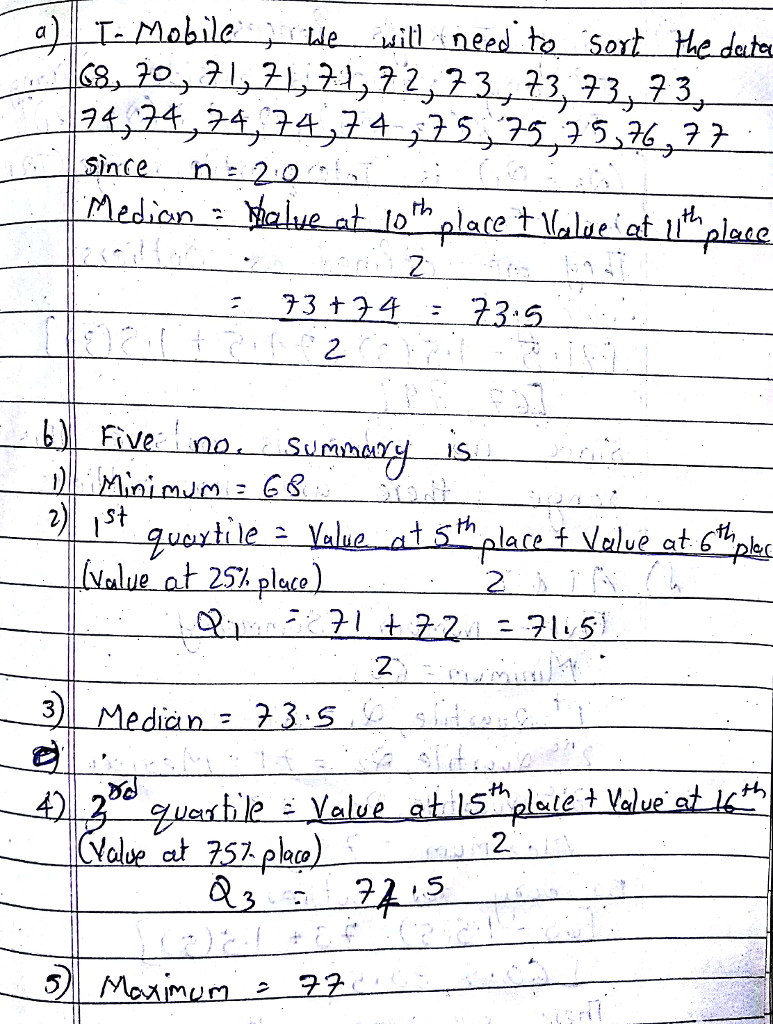 a) T-Mobile, We will need to sort the data
68, 70, 71, 71, 71, 72, 73, 73, 73, 73,
74, 74, 74, 74, 74, 75, 75, 75, 76, 77
since n = 20
Median = Value at 10th place + Value at 11th place
2
= 73 + 74 = 73.5
2
b) Five no. summary is
1) Minimum = 68
2) 1st quartile = Value at 5th place + Value at 6th plac
(Value at 25% place) 2
Q1 = 71 + 72 = 71.5
2
3) Median = 73.5
4) 3rd quartile = Value at 15th place + Value at 16th
(Value at 75% place) 2
Q3 = 74.5
5) Maximum = 77